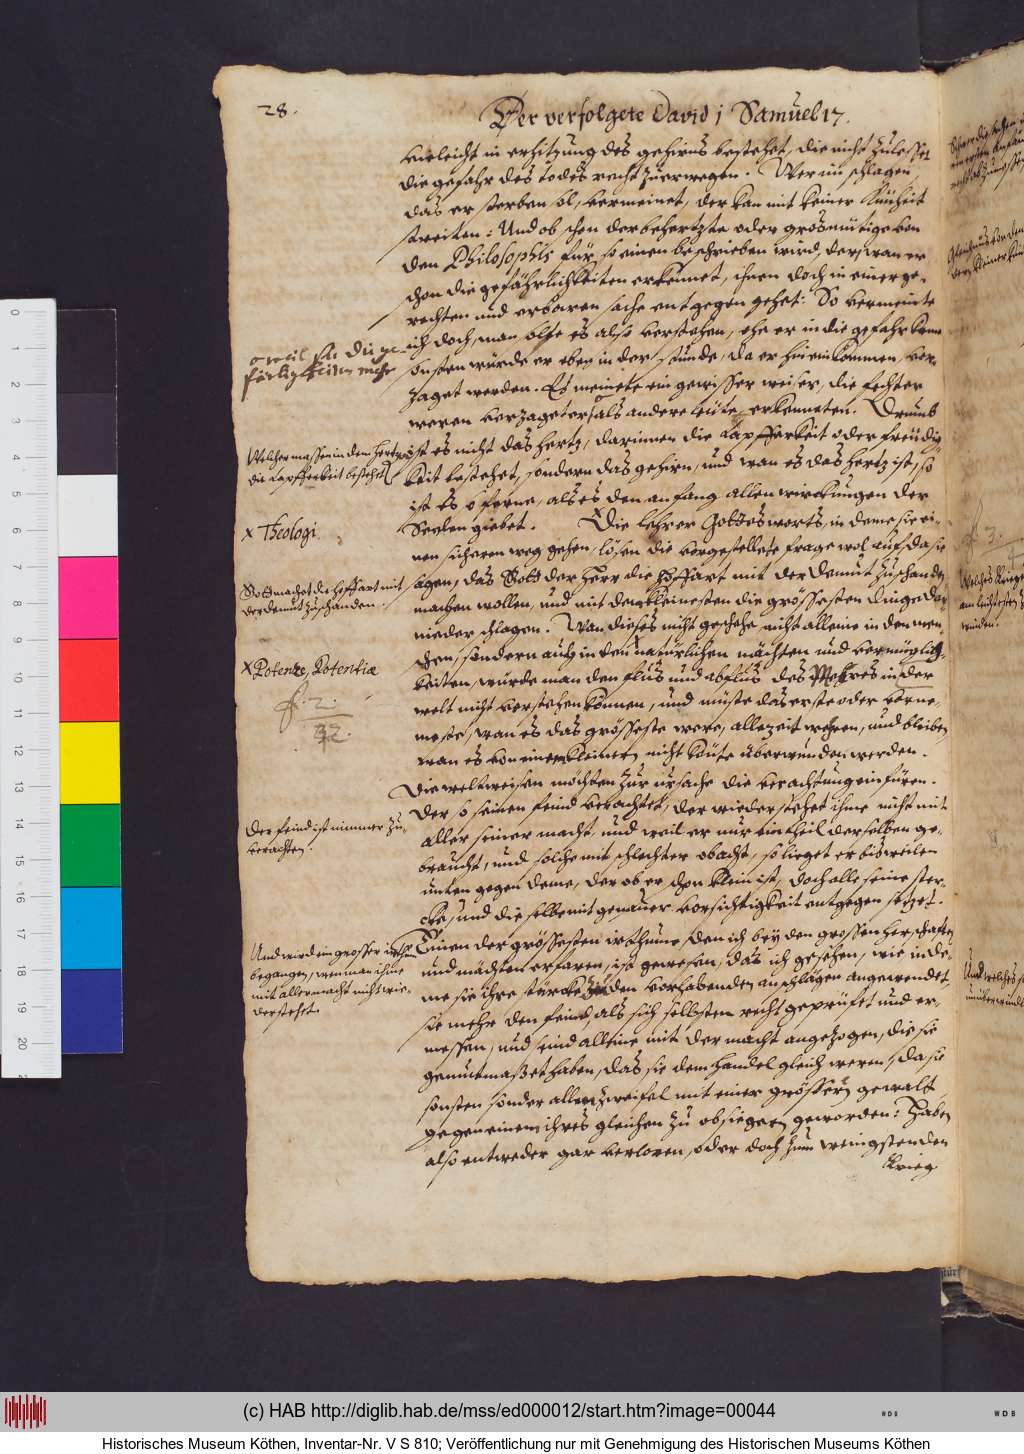 28.
Der verfolgete David 1 Samuel 17.
vieleicht in erhitzung des gehirns bestehet, die nicht zulesset
die gefahr des todes recht zuerwegen. Wer im schlagen,
das er sterben sol, vermeinet, der kan mit keiner künheit
streiten: Und ob schon der behertzte oder grosmütige von
den Philosophis für so einen beschrieben wird, der, wan er
schon die gefährlichkeiten erkennet, ihnen doch in einer ge-
rechten und erbaren sache entgegen gehet: So vermeinte
ich doch, man solte es also verstehen, ehe er in die gefahr keme
sonsten würde er eben in der stunde, da er hinein kommen, ver-
zaget werden. Es meinete ein gewisser weiser, die fechter
weren verzageter, als andere leüte, erkenneten. Drumb
ist es nicht das hertz, darinnen die tapfferkeit oder freudig-
keit bestehet, sondern das gehirn, und wan es das hertz ist, so
ist es so ferne, als es den anfang allen wirckungen der
Seelen giebet. Die lehrer Gottes worts, in deme sie ei-
nen sicheren weg gehen, lösen die vorgestellete frage wol auf, da sie
sagen, das Gott der Herr die hoffart mit der demut zuschanden
machen wollen, und mit den kleinesten die grössesten dinge dar-
nieder schlagen. Wan dieses nicht geschehe, nicht alleine in den men-
schen, sondern auch in den natürlichen mächten und vermüglich-
keiten, würde man den flus und abflus des Mehres in der
welt nicht verstehen können, und müste das erste oder vorne-
meste, wan es das grösseste were, allezeit wehren, und bleiben
wan es von einem kleinern nicht könte überwunden werden.
Die weltweisen möchten zur ursache die verachtung einfüren.
Der so seinen feind verachtet, der wiederstehet ihme nicht mit
aller seiner macht, und weil er nur ein theil derselben ge-
braucht, und solche mit schlechter obacht, so lieget er bisweilen
unten gegen deme, der ob er schon klein ist, doch alle seine ster-
cke, und dieselbe mit genauer vorsichtigkeit entgegen setzet.
Einen der grössesten irthume, den ich bey den grossen herschaften
und mächten erfaren, ist gewesen, das ich gesehen, wie in de-
me sie ihre stärcke zu den vorhabenden anschlägen angewendet,
sie mehr den feind, als sich selbsten recht geprüfet und er-
messen, und sind alleine mit der macht angezogen, die sie
gemutmaßet haben, das sie dem handel gleich weren, da sie
sonsten sonder allen zweifel mit einer grössern gewalt
gegen einem ihres gleichen zu obsiegern geworden: Haben
also entweder gar verloren, oder doch zum weinigsten den
krieg
weil sie die ge-
färligkeiten mehr
Welcher massen in dem hertzen
die tapfferkeit bestehet
x Theologi
Gott machet die hoffart mit
der demut zuschanden.
x Potenze, Potentiæ
f. 2.
Der feind ist nimmer zu
verachten.
Und wird ein grosser irthum
begangen, wen man ihme
mit aller macht nicht wie-
derstehet.
0
1
2
3
4
5
6
7
8
9
10
11
12
13
14
15
16
17
18
19
20
(c) HAB http://diglib.hab.de/mss/ed000012/start.htm?image=00044
Historisches Museum Köthen, Inventar-Nr. V S 810; Veröffentlichung nur mit Genehmigung des Historischen Museums Köthen